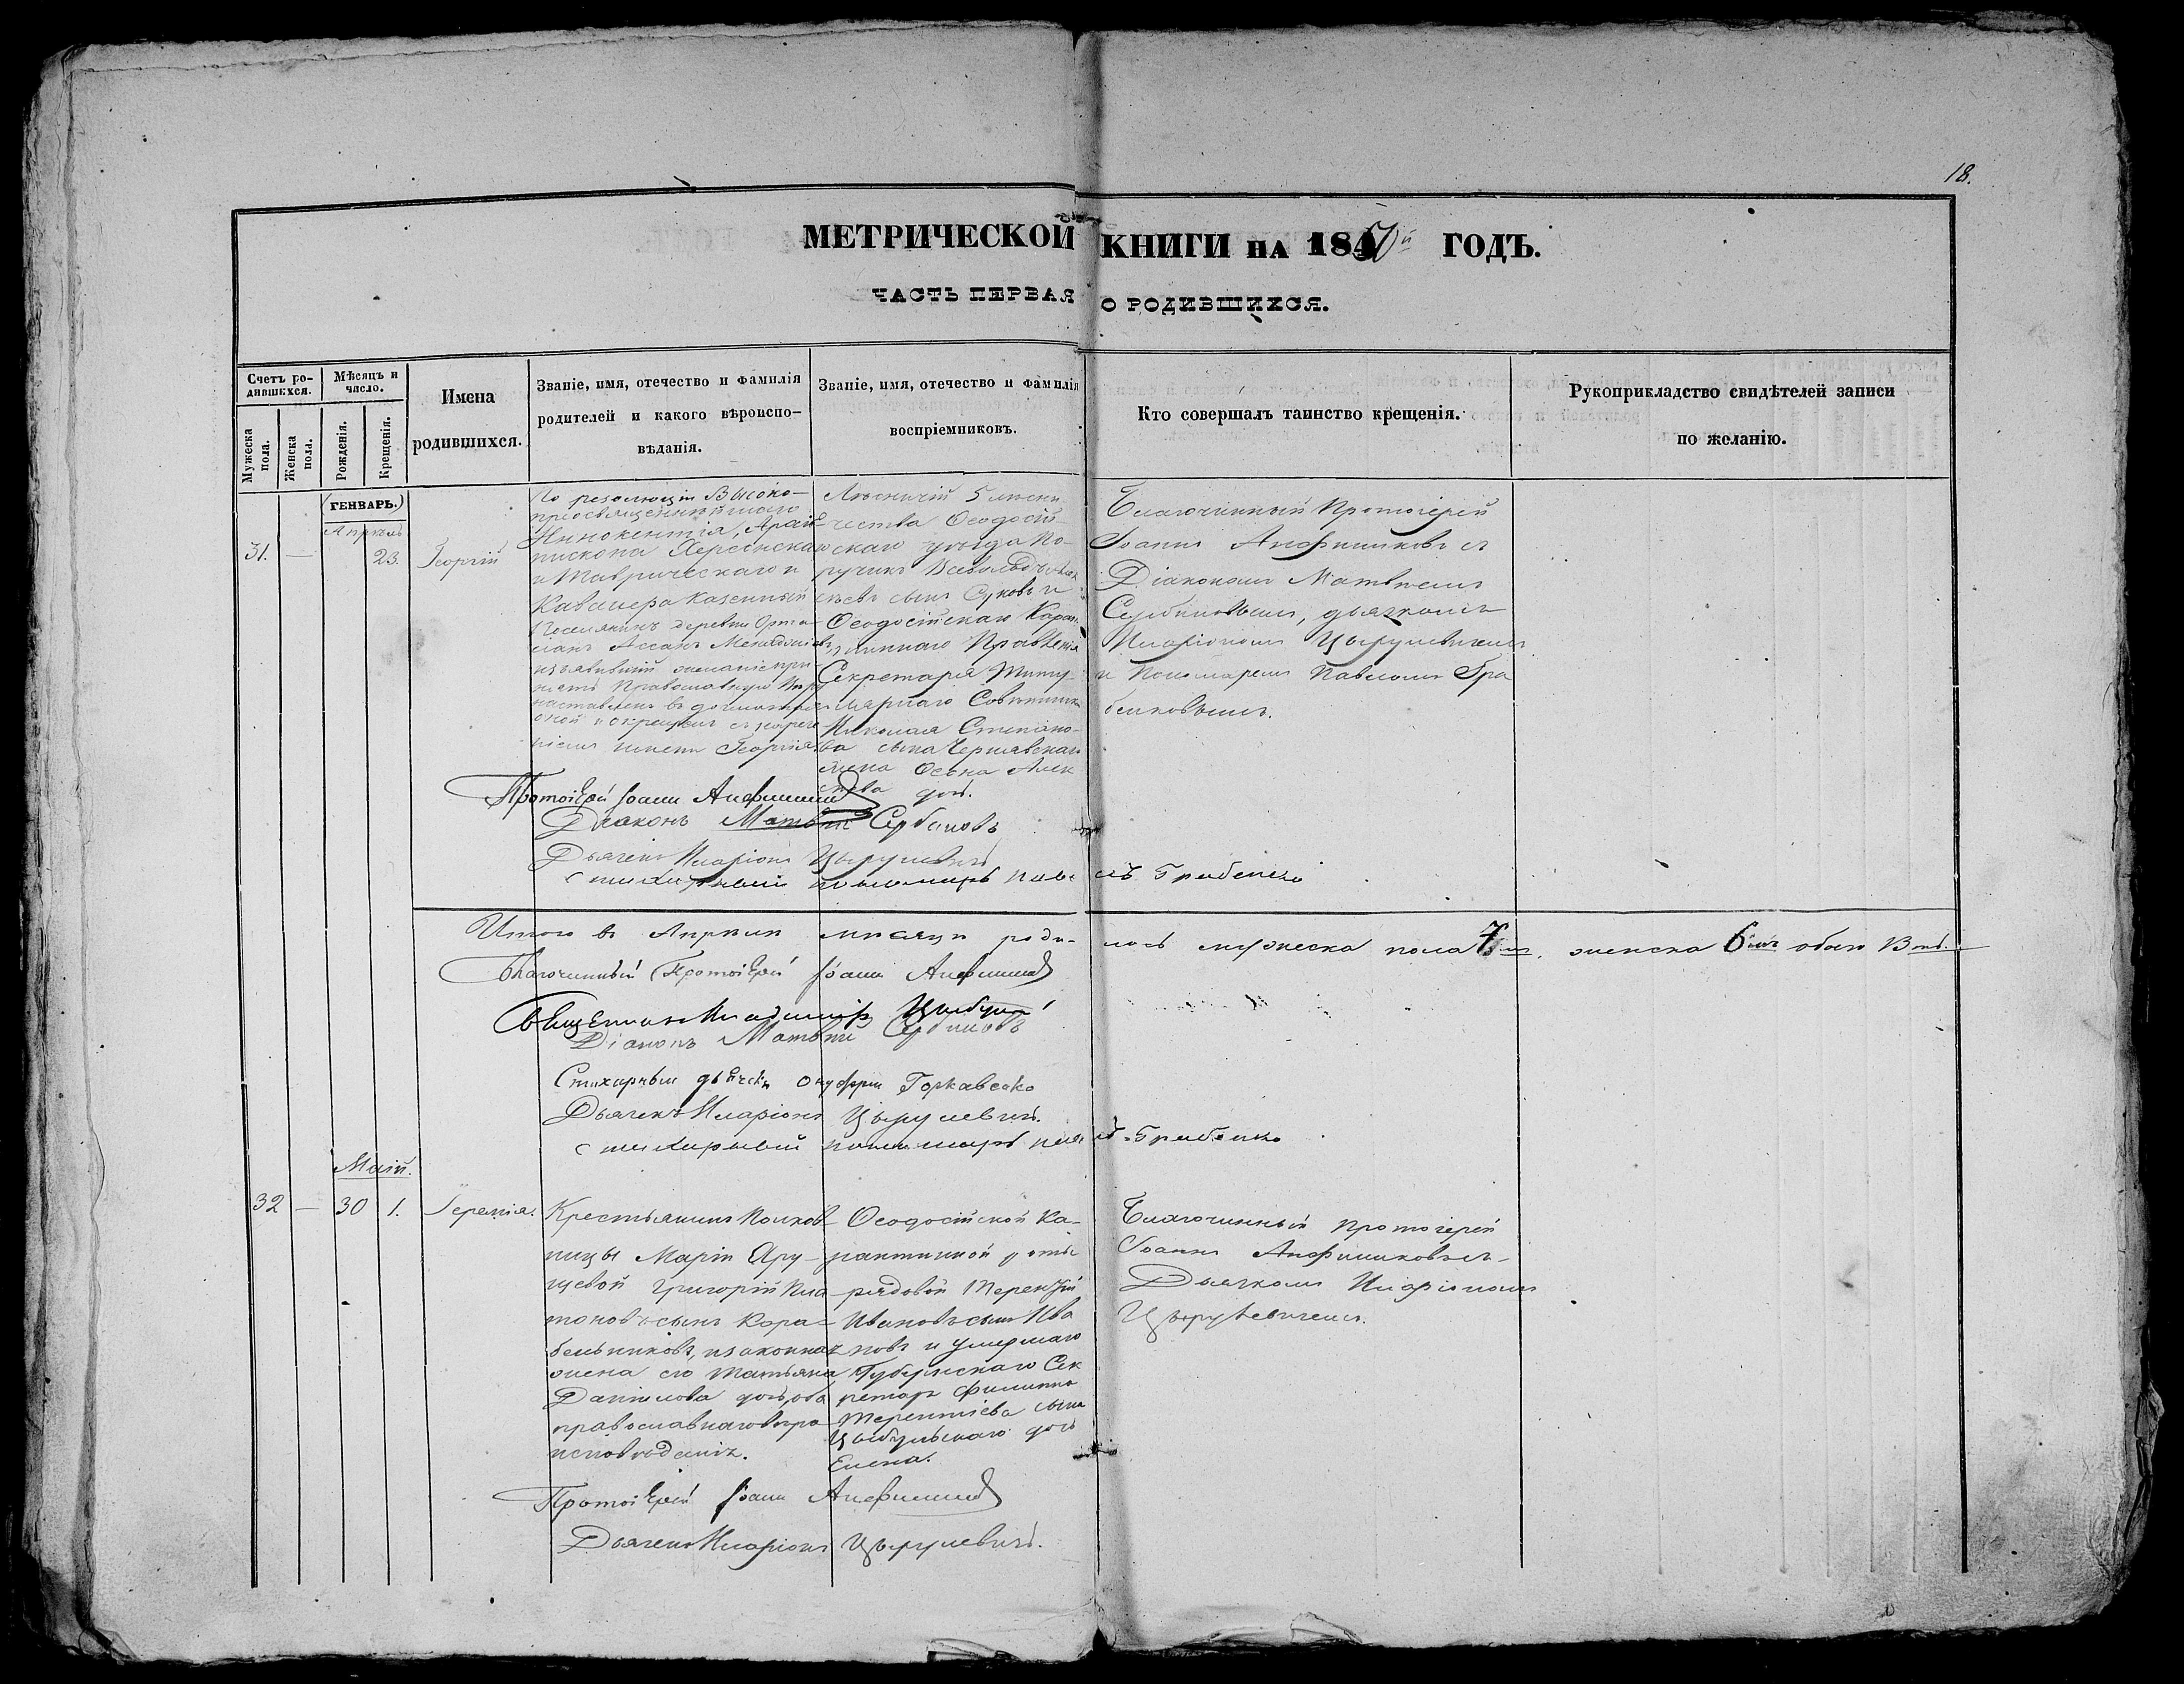 18.
МЕТРИЧЕСКОЙ КНИГИ НА 1850й ГОДЪ.
ЧАСТЬ ПЕРВАЯ О РОДИВШИХСЯ.
Счетъ родившихся.
Мужеска пола.
Женска пола.
Мѣсяцъ и число.
Рожденія.
Крещенія.
Имена
родившихся.
Званіе, имя, отечество и фамилія
родителей и какого вѣроиспо-
вѣданія.
Званіе, имя, отечество и фамилія
воспріемниковъ.
Кто совершалъ таинство крещенія.
Рукоприкладство свидѣтелей записи
по желанію.
(ГЕНВАРЬ.)
Апрѣль
31. — 23. Георгій
По резолюціи Высоко-
преосвященнѣйшаго
Иннокентія, Архіе-
пископа Херсонскаго
и Таврическаго и
Кавалера казенный
Поселянинъ деревни Орта-
Ассанъ
изъявившій желаніе при-
нять Православную Вѣру
наставленъ въ догматахъ
оной и окрещенъ съ нарече-
ніемъ имени Георгія.
Лѣсничій 5 лѣсни-
чества Ѳеодосій-
скаго уѣзда По-
ручикъ
сынъ и
Ѳеодосійскаго Каран-
тиннаго Правленія
Секретаря Титу-
лярнаго Совѣтника
Николая Степано-
ва сына Чернявскаго
жена
дочь.
Благочинный Протоіерей
Іоаннъ Анфимиковъ съ
Діакономъ Матвѣемъ
Сербиновымъ, дьячкомъ
Иларіономъ Цырулевичемъ
и Пономаремъ Павломъ Гра
бенковымъ.
Протоіерей Іоаннъ
Діаконъ Матвѣй Сербиновъ
Дьячекъ Иларіонъ Цырулевичъ
стихарный пономарь Павелъ Грабенко
Итого въ Апрѣлѣ мѣсяцѣ роди- лось мужеска пола 7мь, женска 6ть обоего 13ть.
Благочинный Протоіерей Іоаннъ
Священникъ Владиміръ
Діаконъ Матвѣй Сербиновъ
Стихарный дьячекъ Онуфрій Горкавенко
Дьячекъ Иларіонъ Цырулевичъ.
стихарный пономарь Грабенко
Маій.
32 — 30 1. Іеремія.
Крестьянинъ Полков-
ницы Маріи Яру-
щевой Григорій Пла-
тоновъ сынъ Кара-
бельниковъ, и законная
жена его Татьяна
Данилова дочь, оба
православнаго вѣро-
исповѣданія.
Ѳеодосійской Ка-
рантинной роты
рядовой Терентій
Ивановъ сынъ Ива
новъ и умершаго
Губернскаго Сек
ретаря Филиппа
Терентіева сына
Цыбульскаго дочь
Елена.
Благочинный протоіерей
Іоаннъ Анфимиковъ съ
Дьячкомъ Иларіономъ
Цырулевичемъ.
Протоіерей Іоаннъ
Дьячекъ Иларіонъ Цырулевичъ.